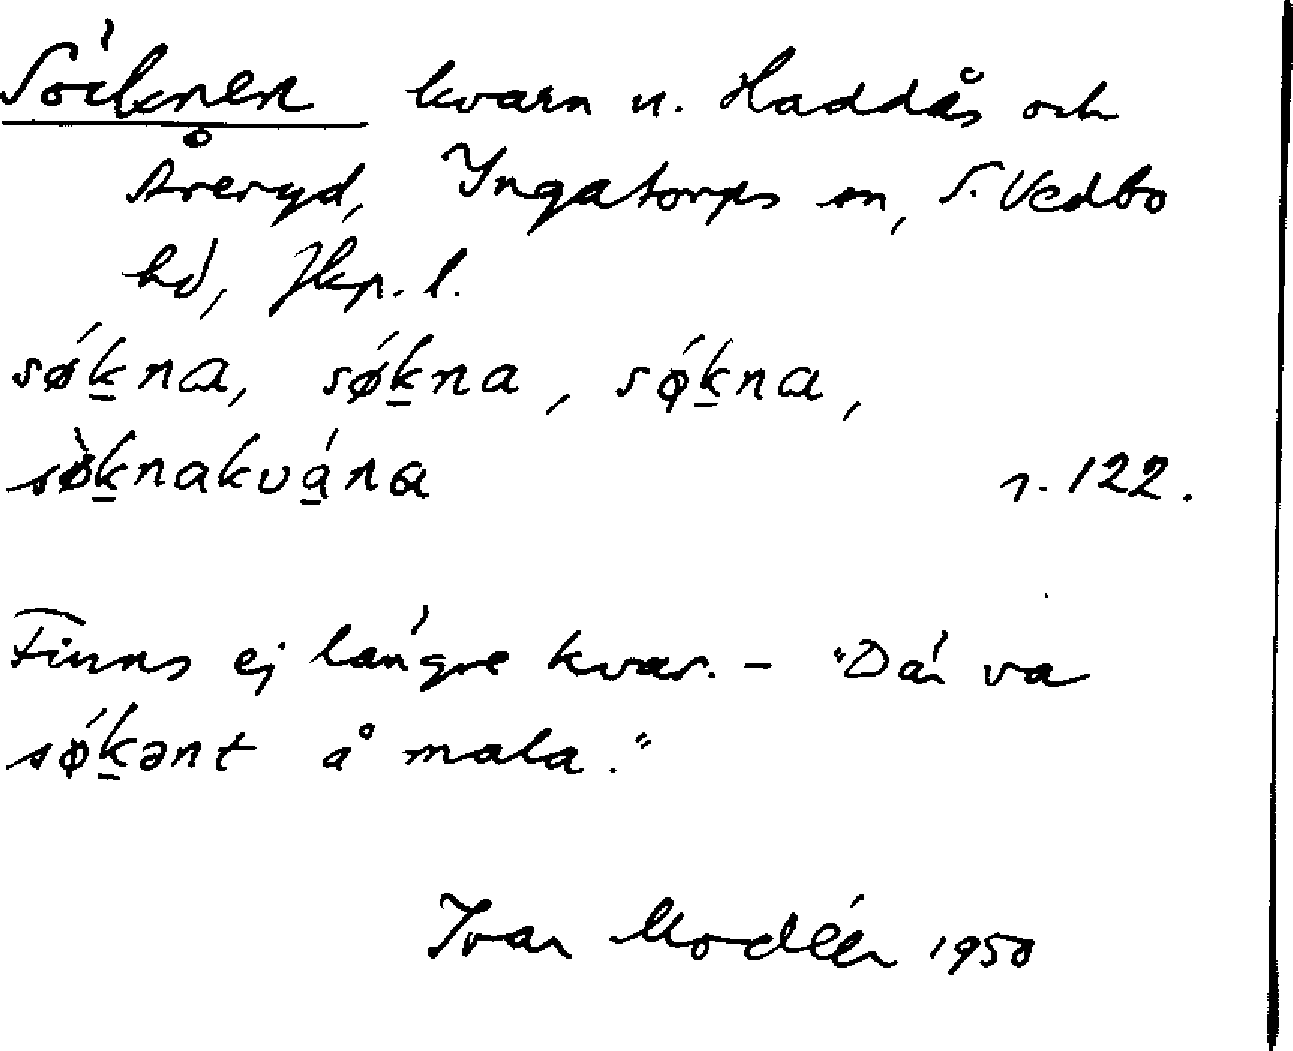 Söcknen kvarn u. Haddås och
Åreryd, Ingatorps sn, S. Vedbo
hd, Jkp. l.
søḱna, søḱna, sǫḱna,
sø̀knakvána r. 122.
Finns ej längre kvar. – "Där va
sǫ́kənt å mala."
Ivar Modéer 1950